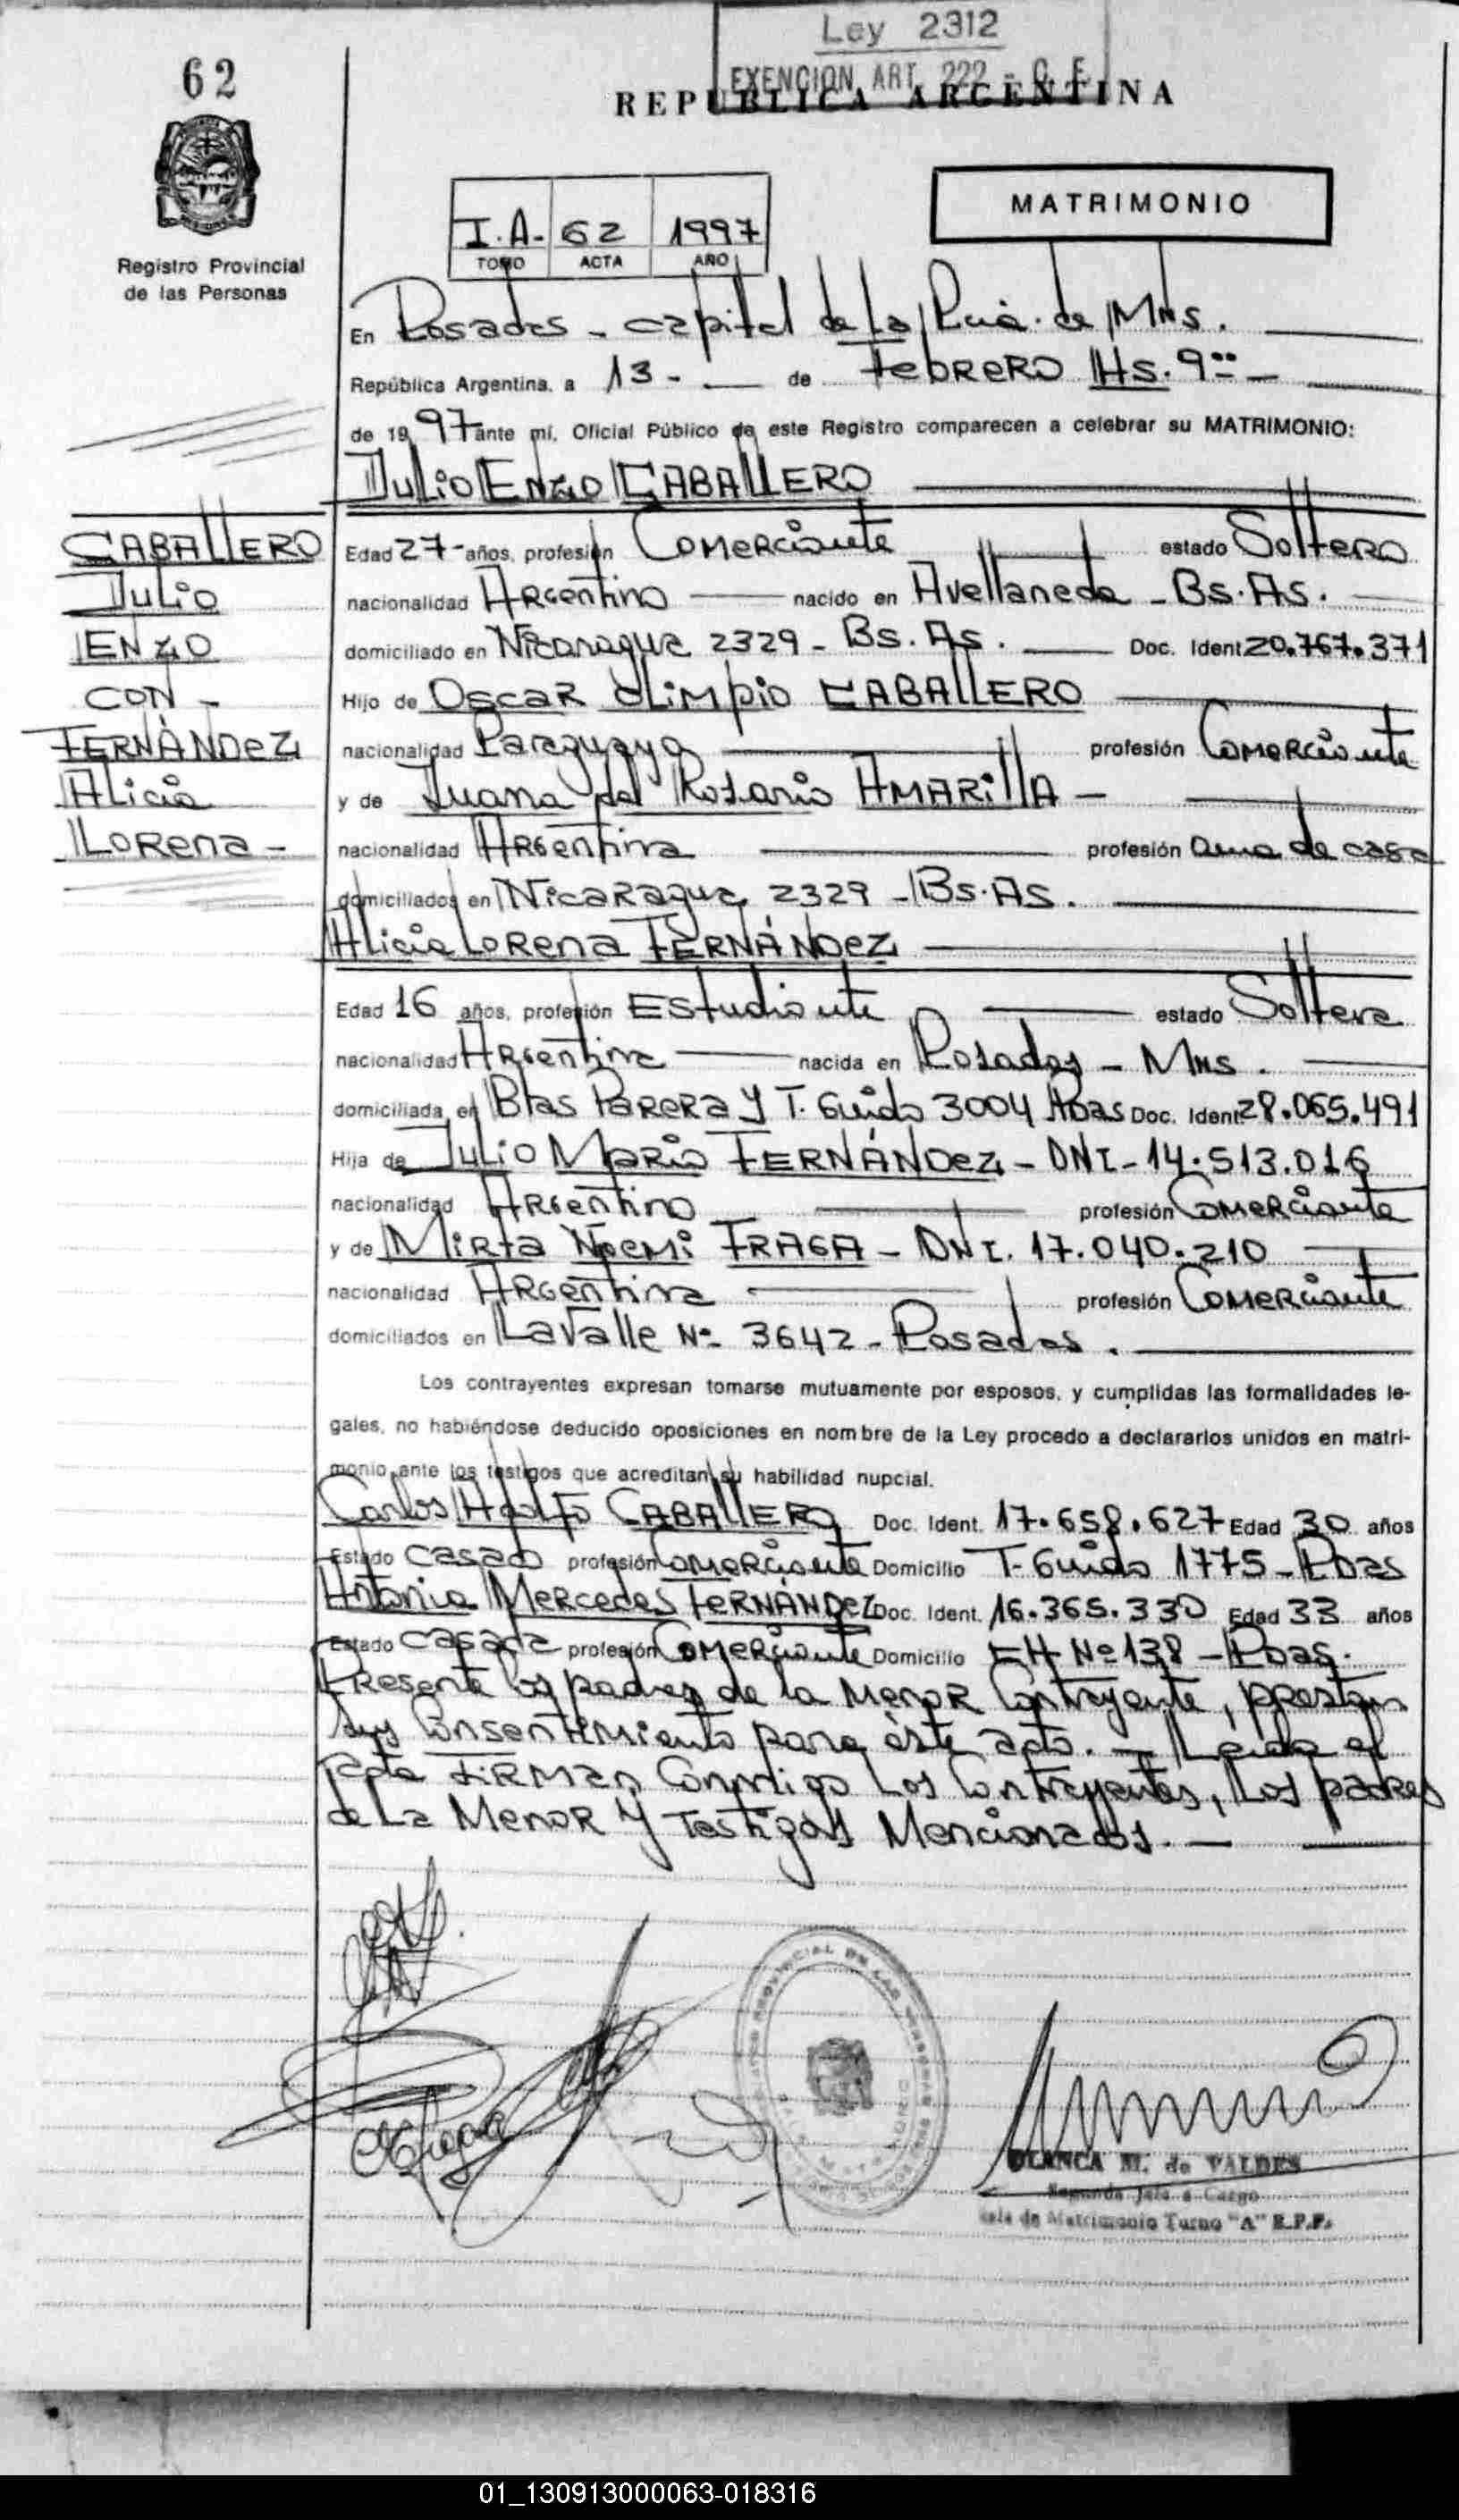 Ley 2312
EXENCION ART. 222 - C. F.
62
REPUBLICA ARGENTINA
MATRIMONIO
I.A- 62 1997
TOMO ACTA AÑO
Registro Provincial
de las Personas
En Posadas - capital de la Pcia. de Mns.
República Argentina, a 13 - de Febrero Hs. 9
de 1997 ante mí, Oficial Público de este Registro comparecen a celebrar su MATRIMONIO:
Julio Enzo CABALLERO
CABALLERO
Julio
ENZO
CON -
FERNÁNDEZ
Alicia
Lorena -
Edad 27- años, profesión Comerciante estado Soltero
nacionalidad Argentino nacido en Avellaneda - Bs. As.
domiciliado en Nicaragua 2329 - Bs. As. Doc. Ident 20.767.371
Hijo de Oscar Olimpio CABALLERO
nacionalidad Paraguaya profesión Comerciante
y de Juana del Rosario AMARILLA -
nacionalidad Argentina profesión ama de casa
domiciliados en Nicaragua 2329 - Bs. As.
Alicia Lorena FERNÁNDEZ
Edad 16 años, profesión Estudiante estado Soltera
nacionalidad Argentina nacida en Posadas - Mns.
domiciliada en Blas Parera y T. Guido 3004 Pdas Doc. Ident 28.065.491
Hija de Julio Mario FERNÁNDEZ - DNI - 14.513.016
nacionalidad Argentino profesión Comerciante
y de Mirta Noemi FRAGA - DNI. 17.040.210
nacionalidad Argentina profesión Comerciante
domiciliados en Lavalle Nº 3642 - Posadas.
Los contrayentes expresan tomarse mutuamente por esposos, y cumplidas las formalidades le-
gales, no habiéndose deducido oposiciones en nombre de la Ley procedo a declararlos unidos en matri-
monio ante los testigos que acreditan su habilidad nupcial.
Carlos Adolfo CABALLERO Doc. Ident. 17.658.627 Edad 30 años
Estado Casado profesión Comerciante Domicilio T. Guido 1775 - Pdas
Antonia Mercedes FERNÁNDEZ Doc. Ident. 16.365.330 Edad 33 años
Estado Casada profesión Comerciante Domicilio CH Nº 138 - Pdas.
Presente los padres de la Menor Contrayente, prestan
sus Consentimiento para éste acto. - Leida el
acta firman Conmigo Los Contrayentes, Los padres
de La Menor y Testigos Mencionados. -
BLANCA M. de VALDES
Segunda Jefe a Cargo
Sala de Matrimonio Turno "A" R.P.P.
01_130913000063-018316